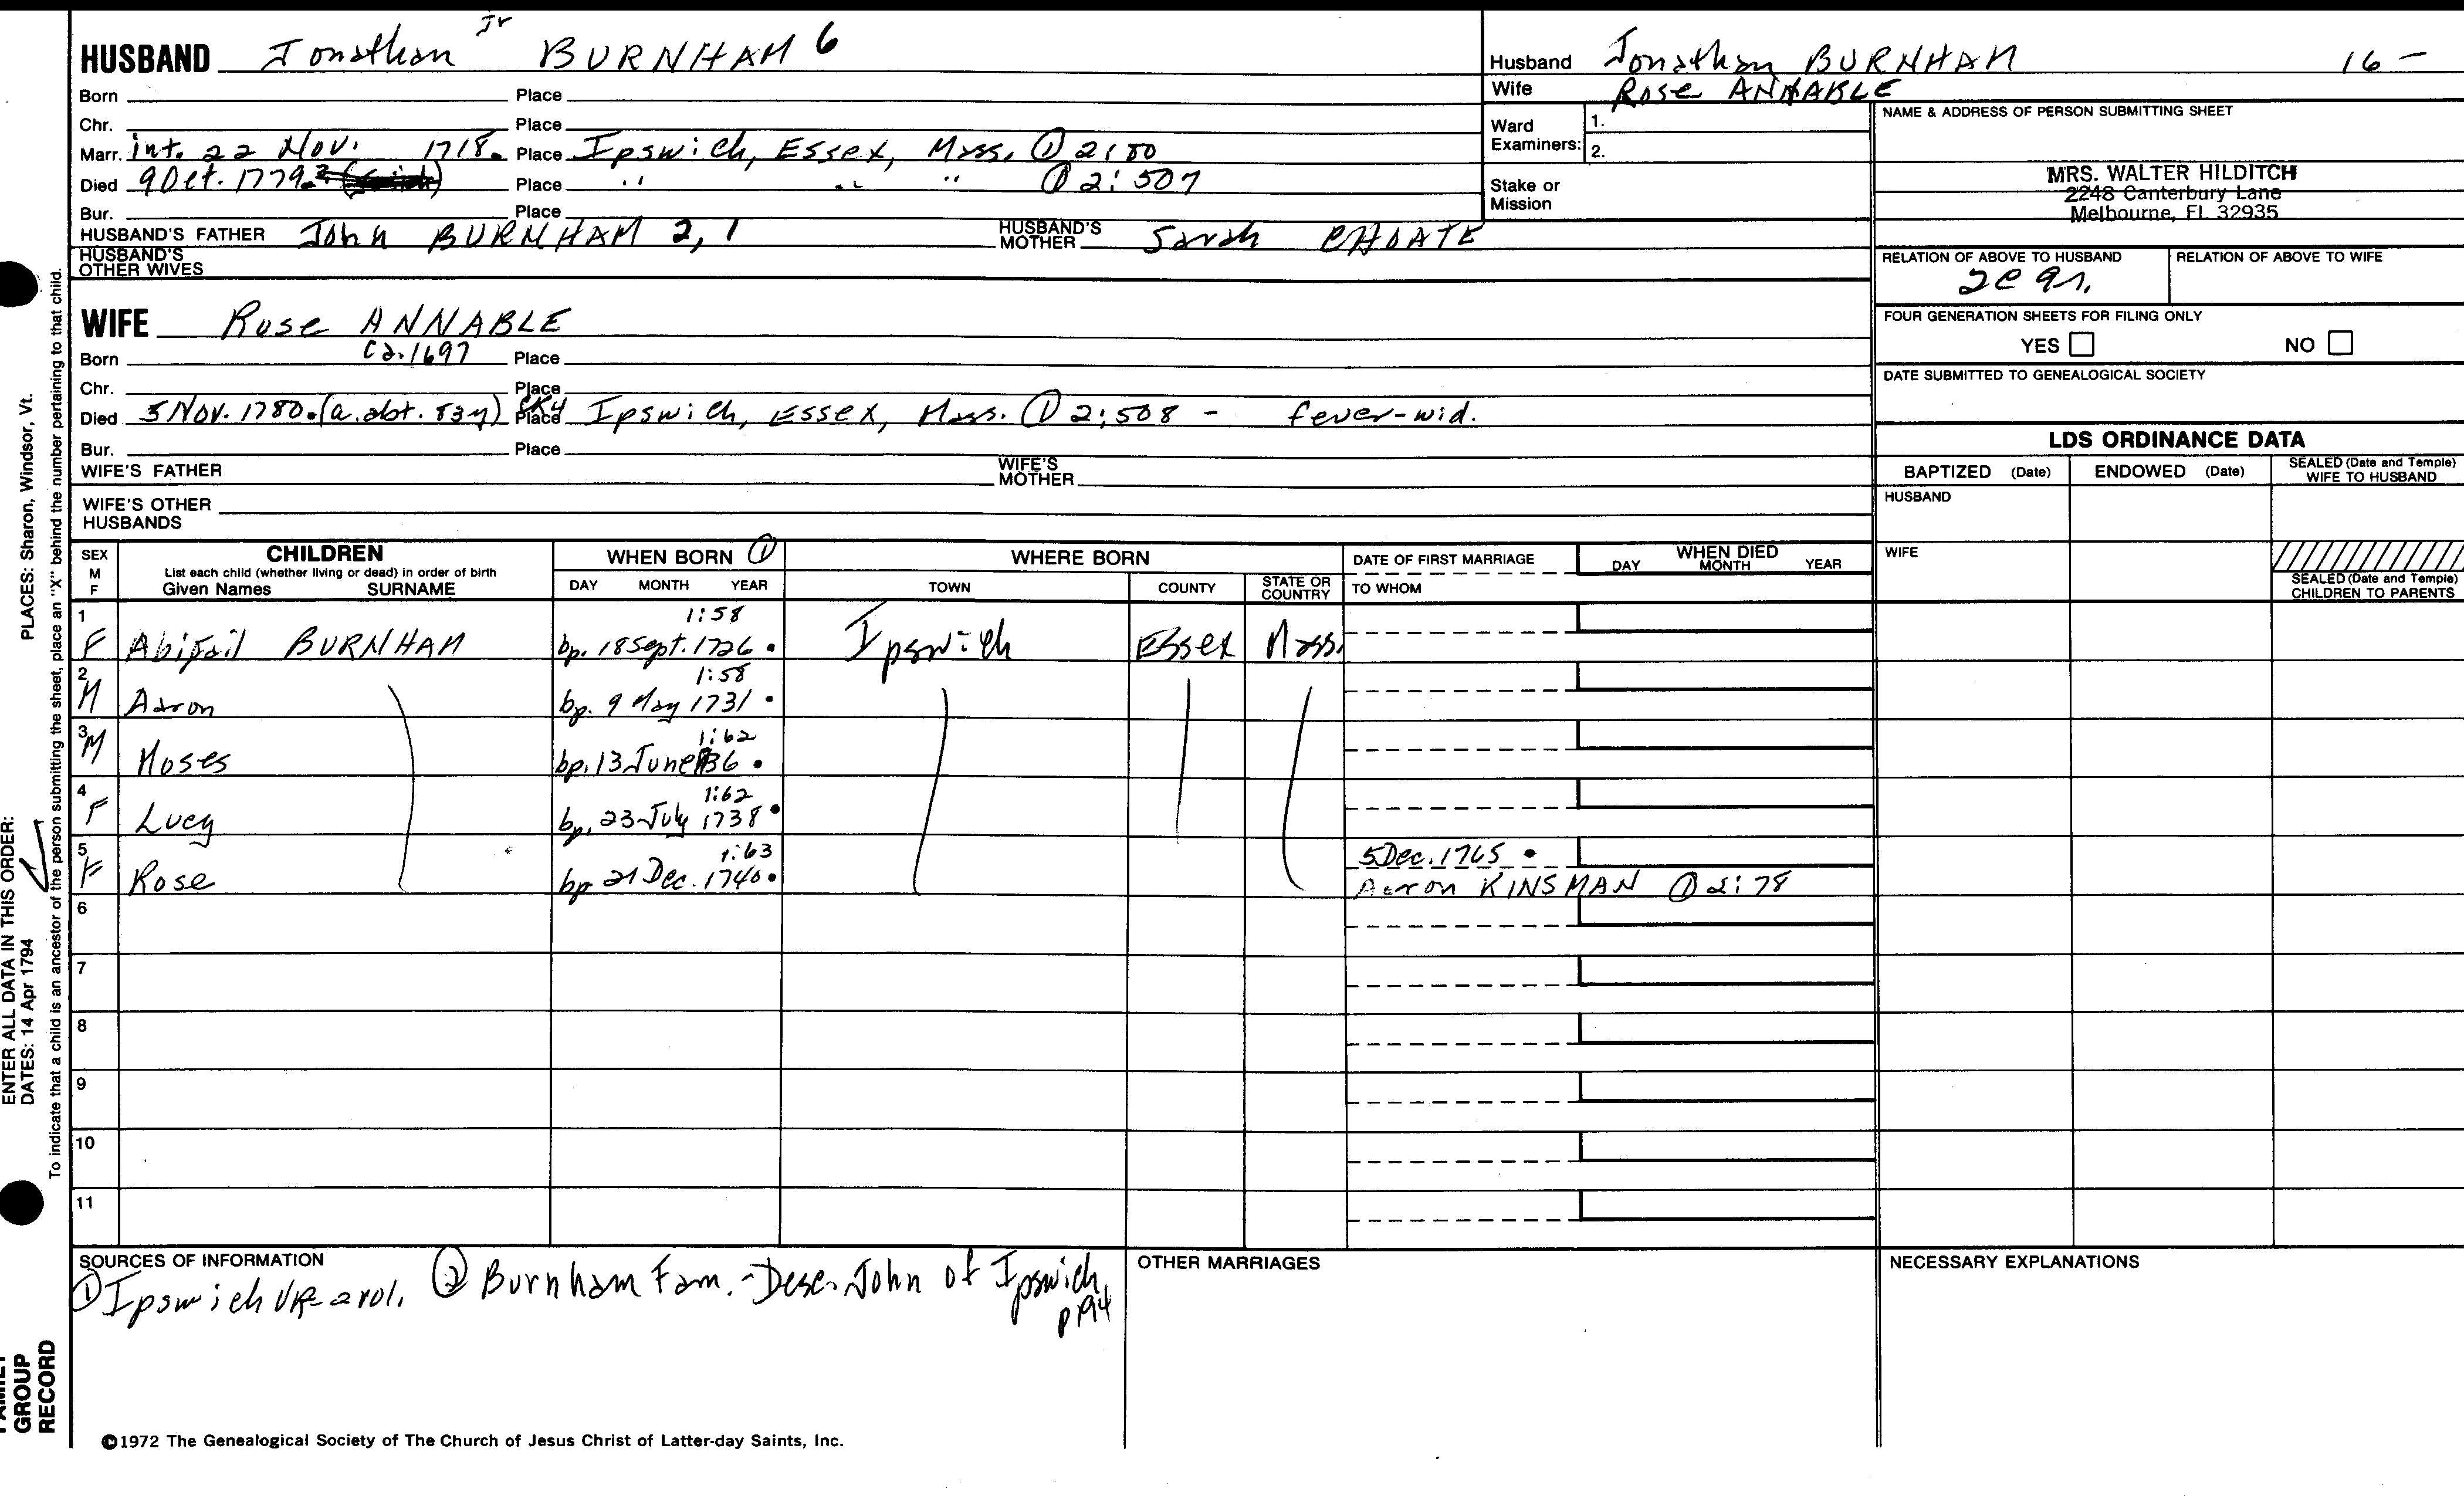 HUSBAND Jonathan Jr BURNHAM 6
Born Place
Chr. Place
Marr. int. 22 Nov. 1718. Place Ipswich, Essex, Mass. ① 2:80
Died 9 Oct. 1779. Place " " " ① 2:507
Bur. Place
HUSBAND'S FATHER John BURNHAM 2,1 HUSBAND'S MOTHER Sarah CHOATE
HUSBAND'S OTHER WIVES
Husband Jonathan BURNHAM 16-
Wife Rose ANNABLE
Ward Examiners: 1.
2.
Stake or Mission
NAME & ADDRESS OF PERSON SUBMITTING SHEET
MRS. WALTER HILDITCH
2248 Canterbury Lane
Melbourne, FL 32935
RELATION OF ABOVE TO HUSBAND RELATION OF ABOVE TO WIFE
FOUR GENERATION SHEETS FOR FILING ONLY
YES NO
DATE SUBMITTED TO GENEALOGICAL SOCIETY
WIFE Rose ANNABLE
Born ca. 1697 Place
Chr. Place
Died 5 Nov. 1780. (a. abt. 83y) Place Ipswich, Essex, Mass. ① 2:508 - fever-wid.
Bur. Place
WIFE'S FATHER WIFE'S MOTHER
WIFE'S OTHER HUSBANDS
LDS ORDINANCE DATA
BAPTIZED (Date) ENDOWED (Date) SEALED (Date and Temple) WIFE TO HUSBAND
HUSBAND
WIFE
SEALED (Date and Temple) CHILDREN TO PARENTS
SEX M F CHILDREN WHEN BORN ① WHERE BORN DATE OF FIRST MARRIAGE WHEN DIED
List each child (whether living or dead) in order of birth
Given Names SURNAME DAY MONTH YEAR TOWN COUNTY STATE OR COUNTRY TO WHOM DAY MONTH YEAR
1 1:58
F Abigail BURNHAM bp. 18 Sept. 1726. Ipswich Essex Mass.
2 1:58
M Aaron bp. 9 May 1731.
3 1:62
M Moses bp. 13 June 1736.
4 1:62
F Lucy bp. 23 July 1738.
5 1:63 5 Dec. 1765.
F Rose bp 21 Dec. 1740. Aaron KINSMAN ① 2:78
6
7
8
9
10
11
SOURCES OF INFORMATION
① Ipswich VR-2 vol. ② Burnham Fam.-Desc. John of Ipswich,
p 194
OTHER MARRIAGES
NECESSARY EXPLANATIONS
©1972 The Genealogical Society of The Church of Jesus Christ of Latter-day Saints, Inc.
ENTER ALL DATA IN THIS ORDER:
DATES: 14 Apr 1794 PLACES: Sharon, Windsor, Vt.
To indicate that a child is an ancestor of the person submitting the sheet, place an "X" behind the number pertaining to that child.
FAMILY
GROUP
RECORD